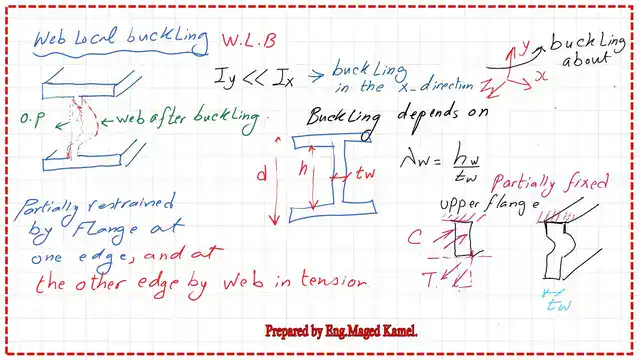 Web Local buckling W.L.B
Iy << Ix → buckling in the x-direction
y
x
Z
buckling about
O.P
web after buckling.
Buckling depends on
d
h
tw
λw = hw / tw
Partially fixed
upper flange
C
T.
tw
Partially restrained
by Flange at
one edge, and at
the other edge by web in tension
Prepared by Eng.Maged Kamel.